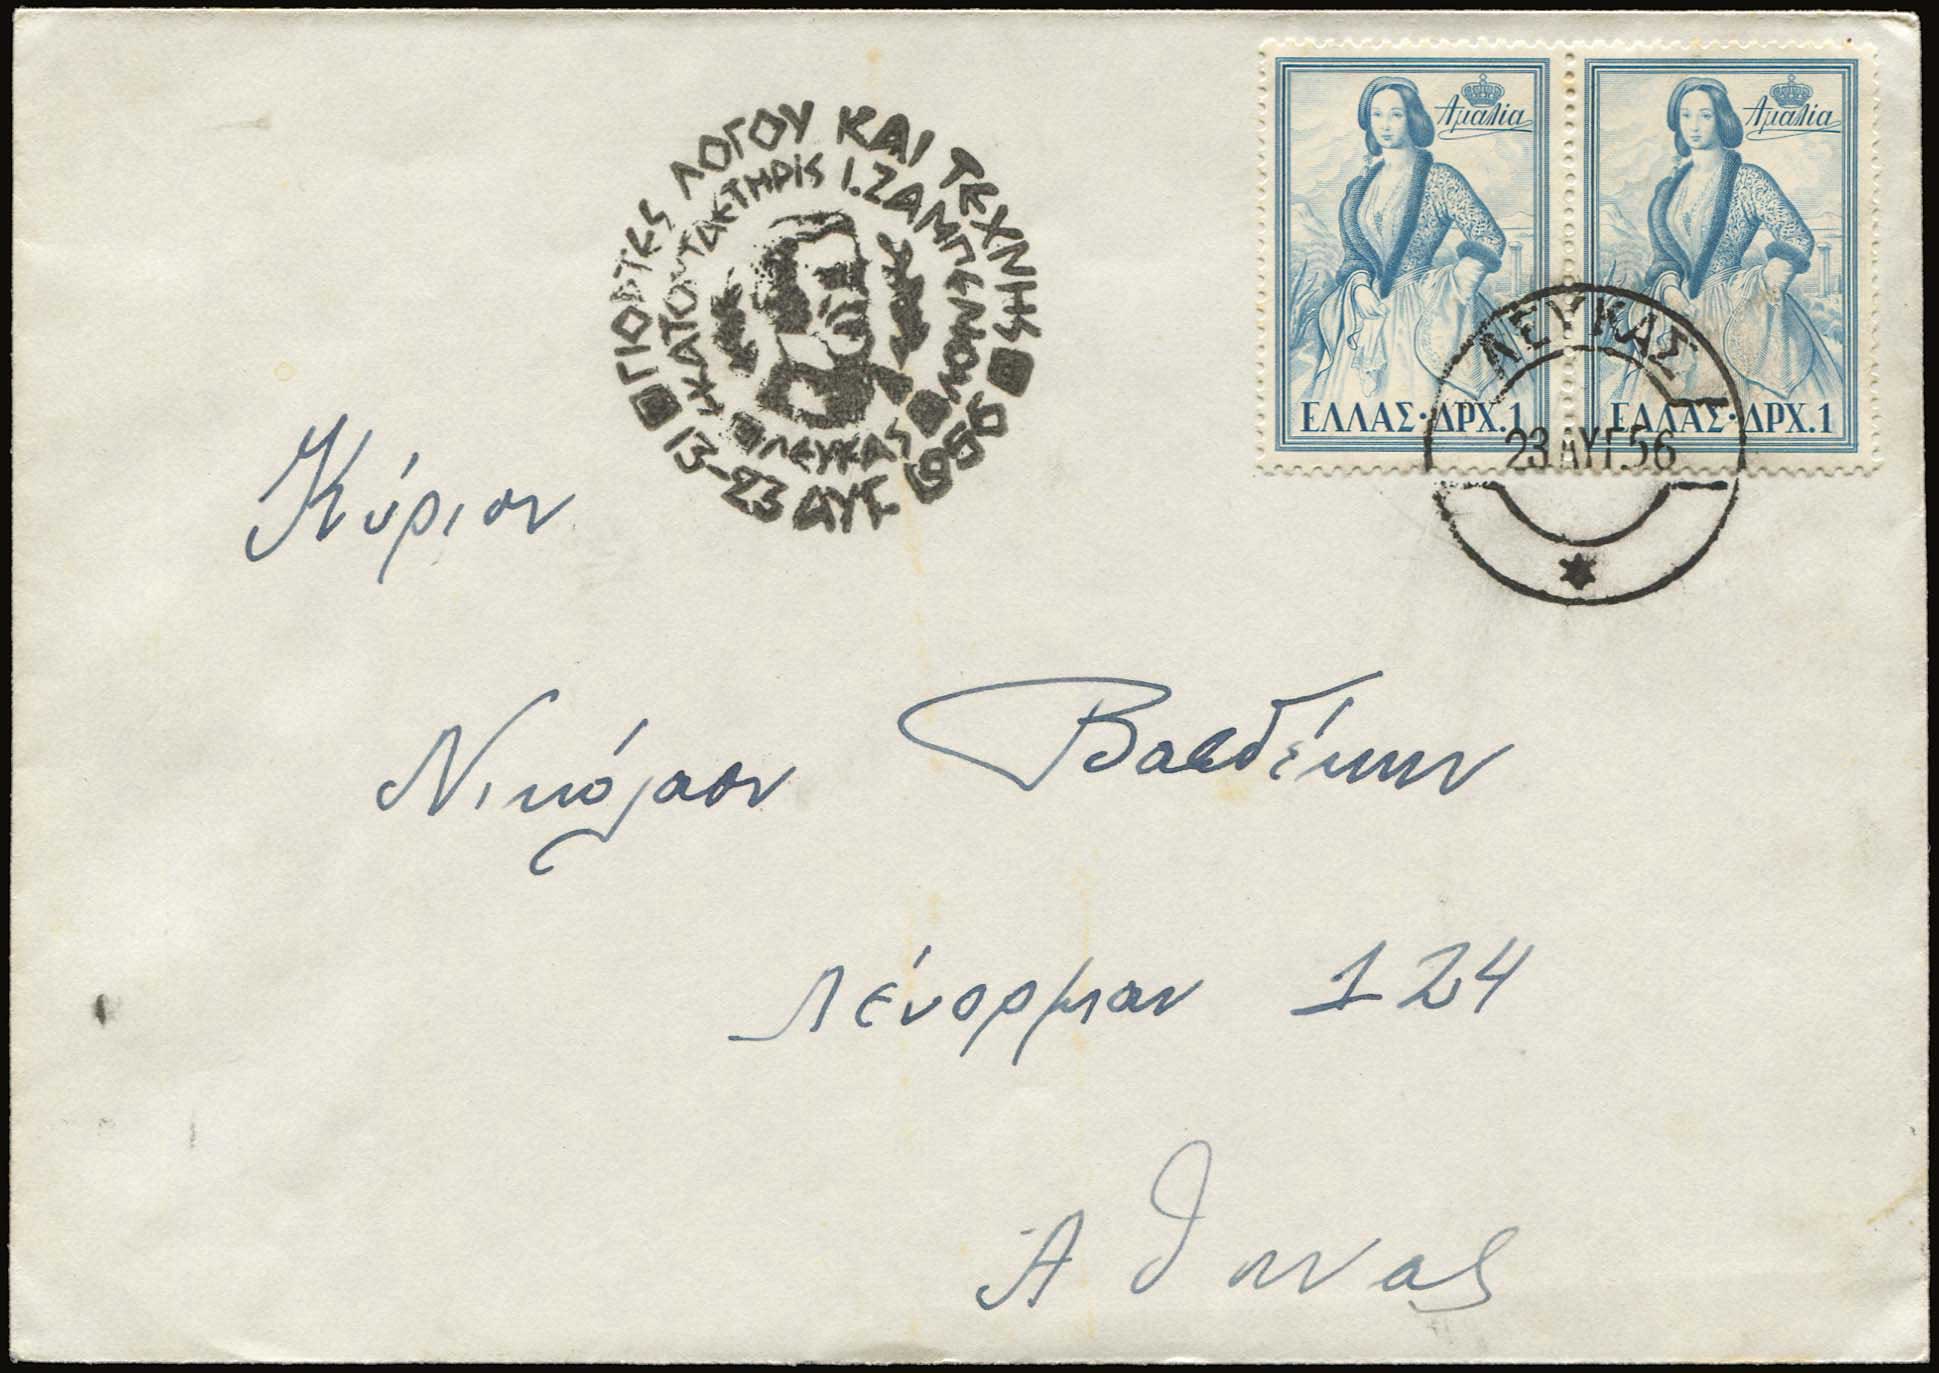 ΓΙΟΡΤΕΣ ΛΟΓΟΥ ΚΑΙ ΤΕΧΝΗΣ
ΕΚΑΤΟΝΤΑΕΤΗΡΙΣ Ι. ΖΑΜΠΕΛΙΟΥ
ΛΕΥΚΑΣ
13-23 ΑΥΓ. 1956
Αμαλία
ΕΛΛΑΣ·ΔΡΧ.1
Αμαλία
ΕΛΛΑΣ·ΔΡΧ.1
ΛΕΥΚΑΣ
23 ΑΥΓ 56
Κύριον
Νικόλαον
Λένορμαν 124
Αθηνας